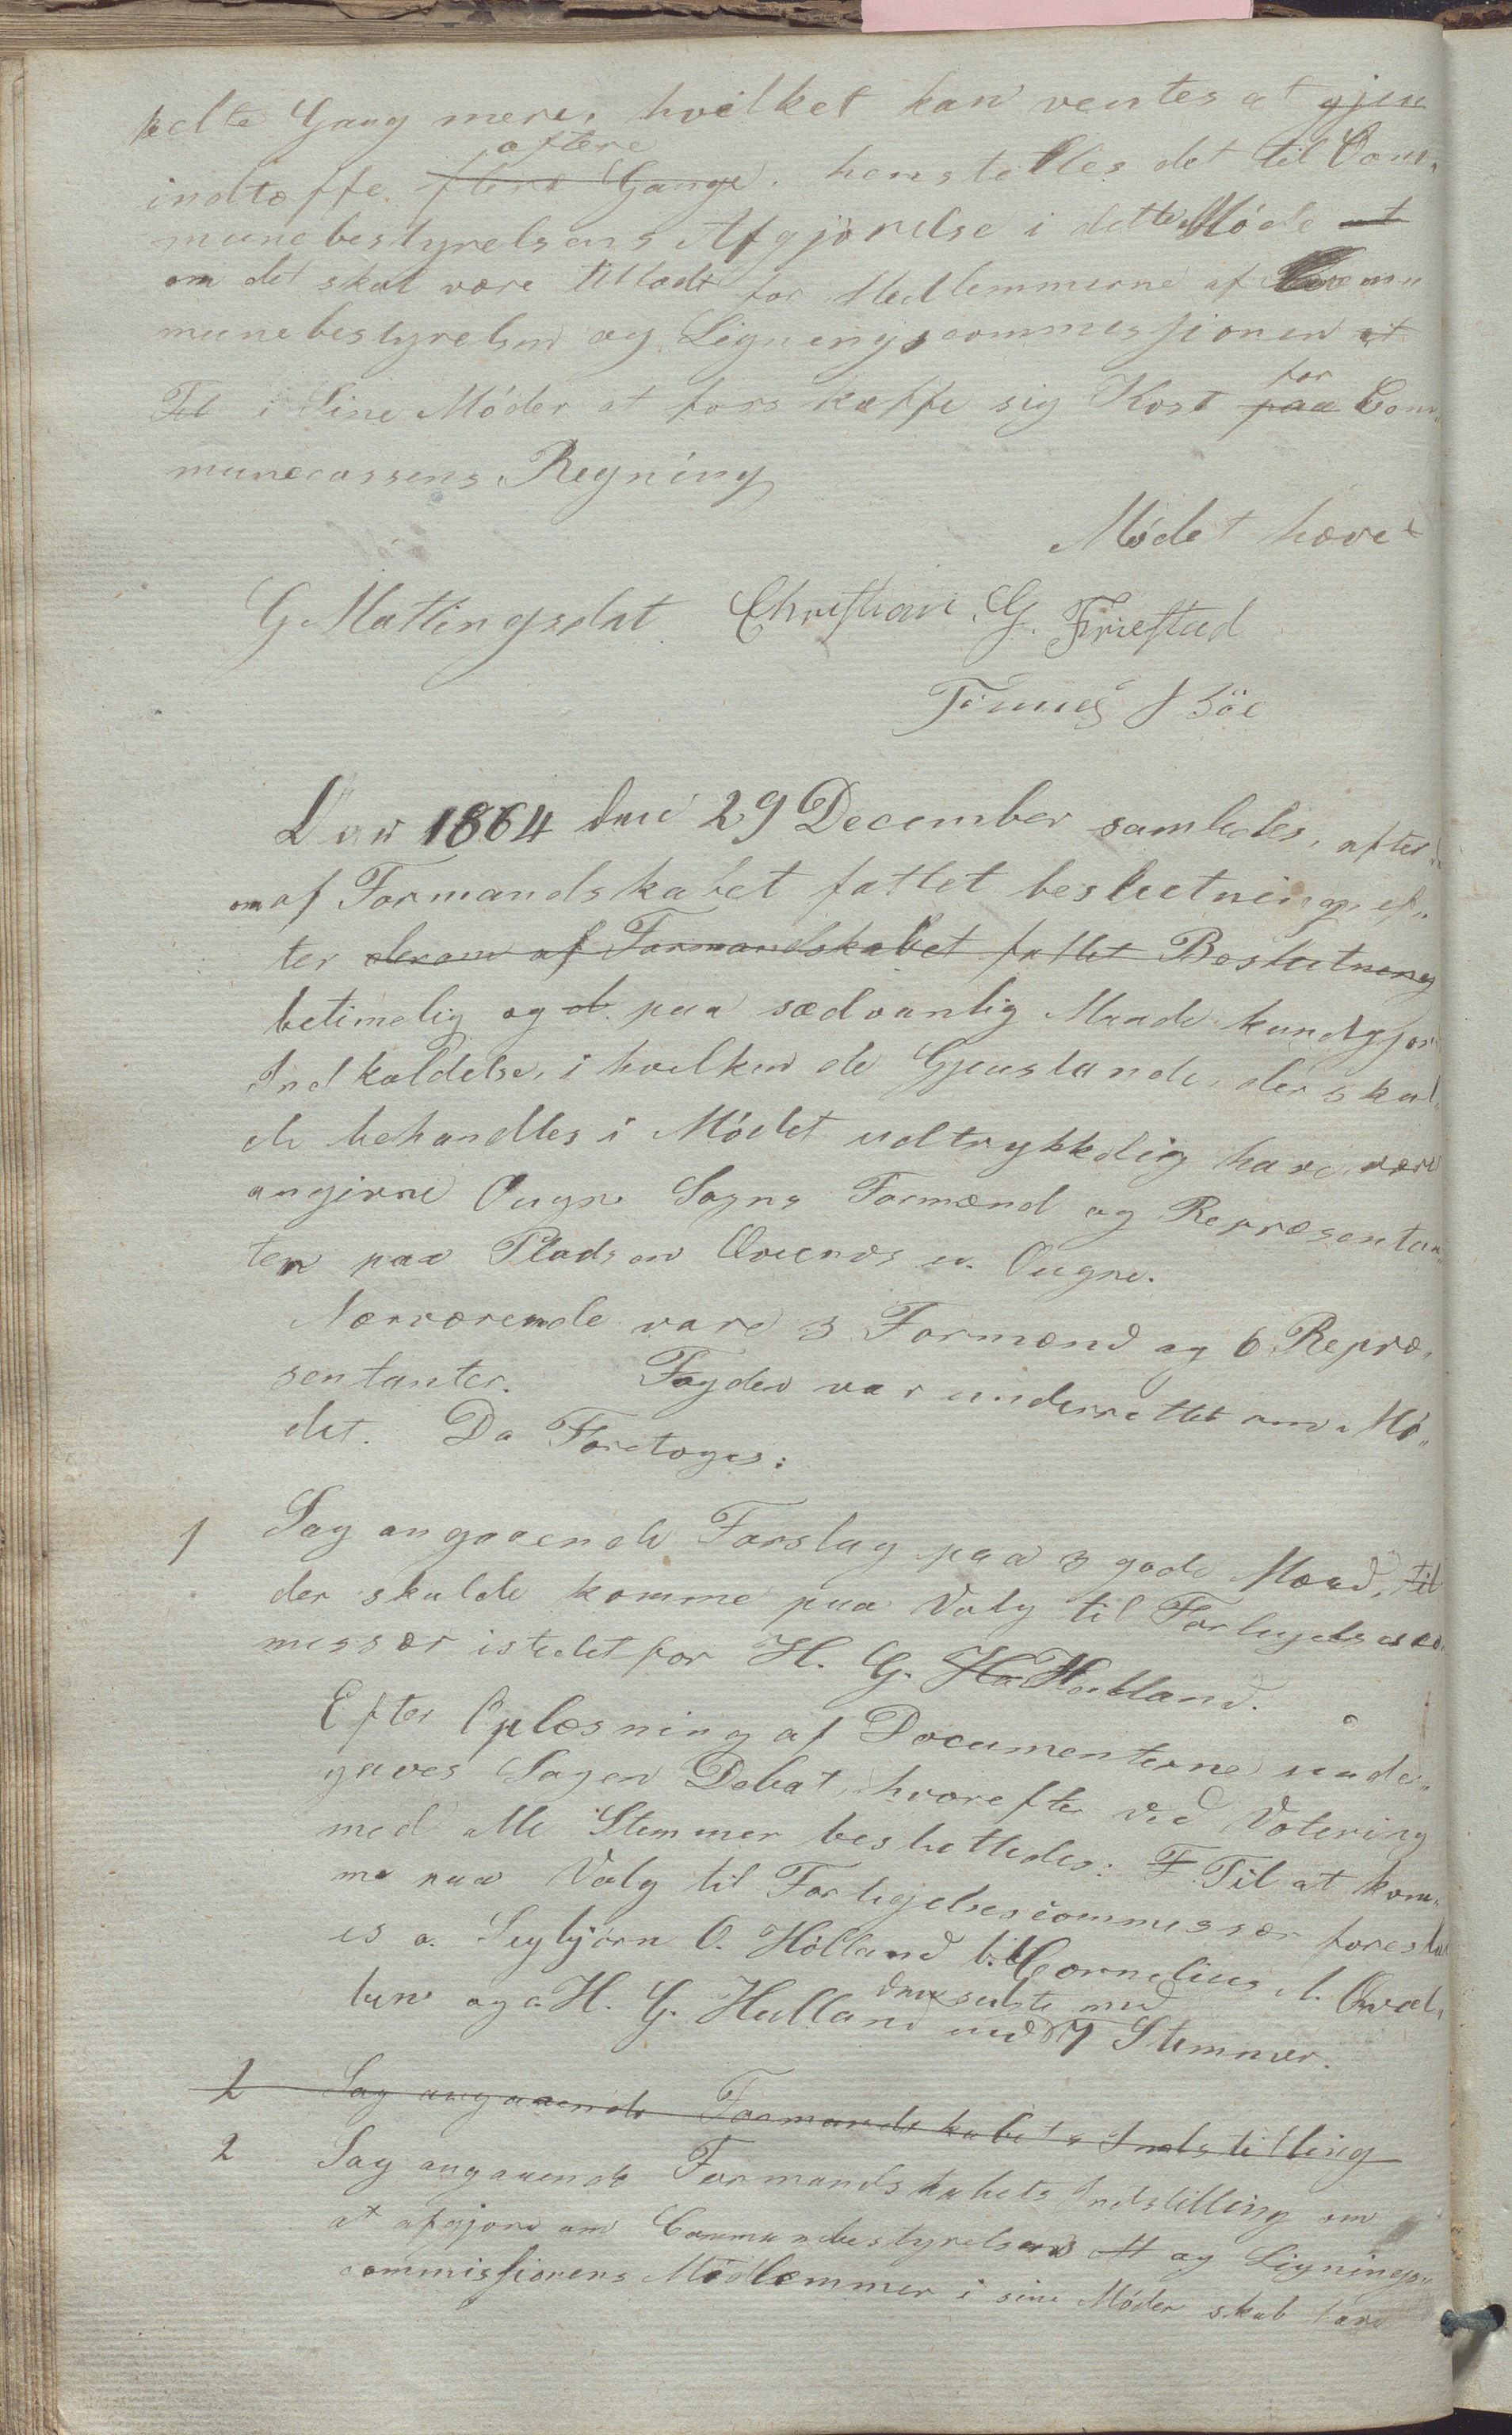 kelte Gang mere, hvilket kan ventes at gjen
indtæffe. oftere flere Gange. henstilles det til Com„
munebestyrelsens Afgjörelse i dette Möde at
om det skal være tilladt for Medlemmerne af Comm
munebestyrelsen og Ligningscommissionen at
Til i Sine Möder at forskaffe sig Kost paa for Com„
munecassens Regning
Mödet hævet
G Mattingsdal Christian. G. Friestad
Tönnes Böe
Aar 1864 den 29 December samledes, efter
om af Formandskabet fattet beslutning, ef„
ter derom af Formandskabet fattet Beslutning
betimelig og d. paa sædvanlig Maade kundgjor
Indkaldelse, i hvilken de Gjenstande, der skul„
de behandles i Mödet udtrykkelig have være
angivne Ougne Sogns Formænd og Repræsentan„
ter paa Pladsen Qviends u. Ougne.
Nærværende vare 3 Formænd og 6 Repræ„
sentanter. Fogden var underrettet om Mö„
det. Da Foretoges:
1 Sag angaaende Forslag paa 3 gode Mænd, til
der skulde komme paa Valg til Forligelsesco„
missær istedetfor H. G. Ha Hulland.
Efter Oplæsning af Documenterne unde„
gaves Sagen Debat, hvorefter ved Votering
med alle Stemmer besluttedes: F Til at kom„
me paa Valg til Forligelsescommissær foreslaa
es a. Seybjörn O. Hölland b. Cornelius A. Qval„
ben og c. H. G. Hulland den sidste med med 7 Stemmer.
2 Sag angaaende Formandskabets Indstilling
2 Sag angaaende Formandskabets Indstilling om
at afgjöre om Communebestyrelsens M og Lignings„
commissionens Medlemmer i sine Möder skal have